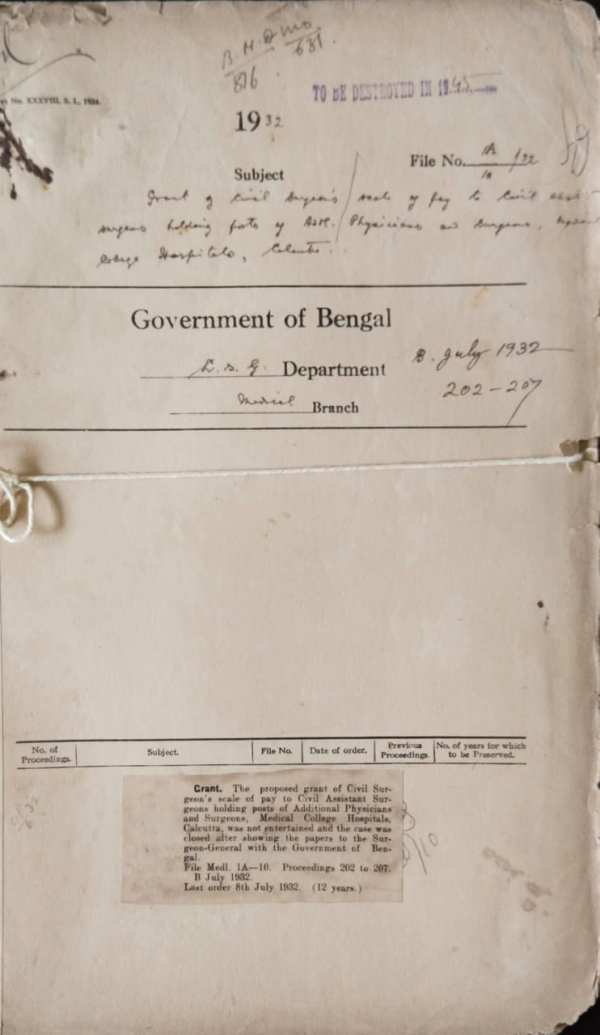 B. H. D mo
876 681
No. XXXVIII, S. L., 1924.
TO BE DESTROYED IN 1945
1932
File No. A/10 /32
Subject
Grant of Civil Surgeon's scale of pay to Civil Asst
Surgeons holding posts of Addl. Physicians and Surgeons, Medical
College Hospitals, Calcutta.
Government of Bengal
L. S. G. Department
B. July 1932
Medical Branch
202-207
No. of Proceedings.
Subject.
File No.
Date of order.
Previous Proceedings.
No. of years for which to be Preserved.
Grant. The proposed grant of Civil Sur-
geon's scale of pay to Civil Assistant Sur-
geons holding posts of Additional Physicians
and Surgeons, Medical College Hospitals,
Calcutta, was not entertained and the case was
closed after showing the papers to the Sur-
geon-General with the Government of Ben-
gal.
File Medl. 1A—10. Proceedings 202 to 207.
B July 1932.
Last order 8th July 1932. (12 years.)